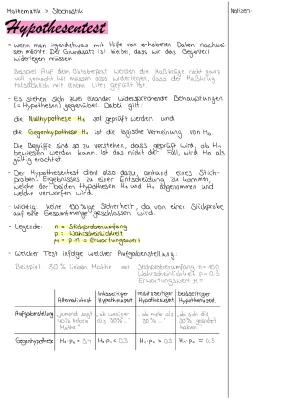 Mathematik > Stochastik
Notizen:
Hypothesentest
- wenn man irgendetwas mit Hilfe von erhobenen Daten nachweisen möchte. Der Grundsatz ist hierbei, dass wir das Gegenteil widerlegen müssen
Beispiel: Auf dem Oktoberfest werden die Maßkrüge nicht ganz voll gemacht. Wir müssen also widerlegen, dass der Maßkrug tatsächlich mit einem Liter gefüllt ist.
- Es stehen sich zwei einander widersprechende Behauptungen
(= Hypothesen) gegenüber. Dabei gilt:
die Nullhypothese H₀ soll geprüft werden und
die Gegenhypothese H₁ ist die logische Verneinung von H₀.
Die Begriffe sind so zu verstehen, dass geprüft wird, ob H₁
bewiesen werden kann. Ist das nicht der Fall, wird H₀ als
gültig erachtet.
- Der Hypothesentest dient also dazu, anhand eines Stich-
proben Ergebnisses zu einer Entscheidung zu kommen,
welche der beiden Hypothesen H₀ und H₁ angenommen und
welche verworfen wird.
- Wichtig: keine 100%ige Sicherheit, da von einer Stichprobe
auf eine Gesamtmenge geschlossen wird.
- Legende: n = Stichprobenumfang
p = Wahrscheinlichkeit
μ = p·n = Erwartungswert
- Welcher Test infolge welcher Aufgabenstellung:
Beispiel: 30% lieben Mathe
Stichprobenumfang n = 100
Wahrscheinlichkeit p = 0.3
Erwartungswert μ =
Alternativtest
linksseitiger Hypothesentest
rechtsseitiger Hypothesentest
beidseitiger Hypothesentest
Aufgabenstellung
"jemand sagt 40% lieben Mathe"
"ob weniger als 30%..."
"ob mehr als 30%..."
"ob sich die 30% geändert haben"
Gegenhypothese
H₁: p₁ = 0.4
H₁: p₁ < 0.3
H₁: p₁ > 0.3
H₁: p₁ ≠ 0.3